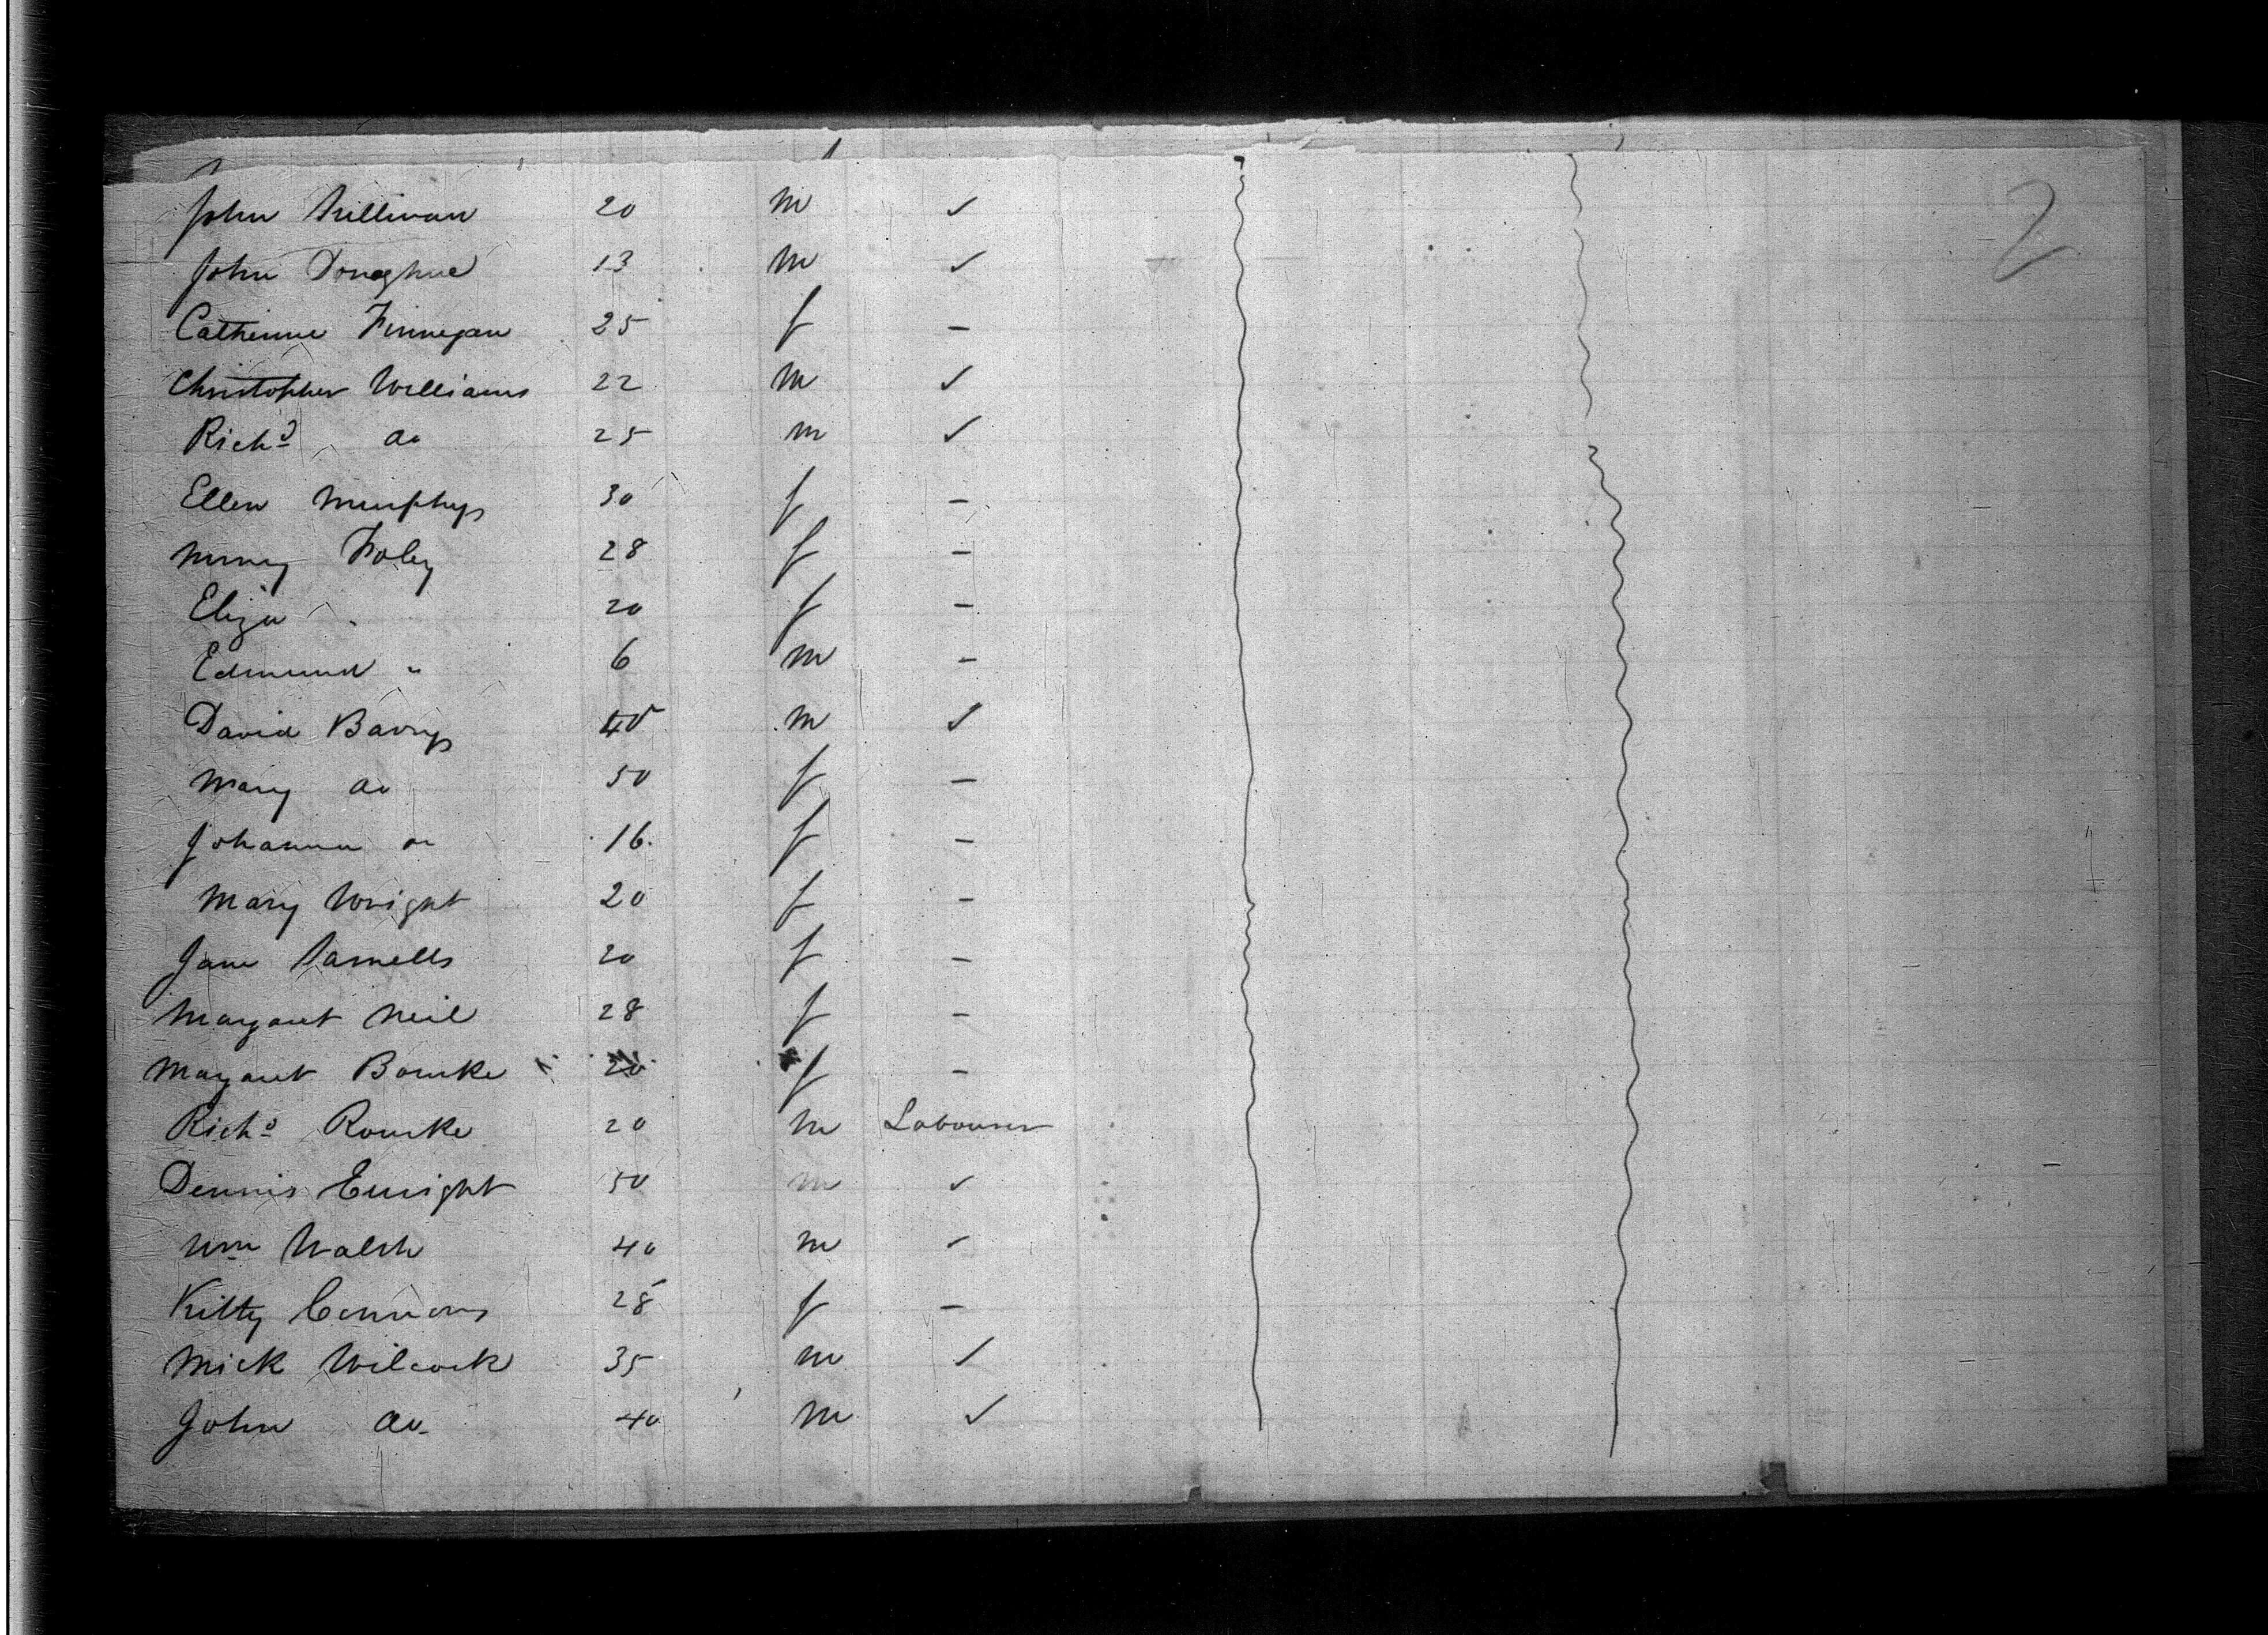 2
John Sullivan 20 m ✓
John Donoghue 13 m ✓
Catherine Finnegan 25 f –
Christopher Williams 22 m ✓
Richd do 25 m ✓
Ellen Murphy 30 f –
Foley 28 f –
Eliza " 20 f –
Edmund " 6 m –
David Barry 45 m ✓
Mary do 50 f –
Johanna do 16 f –
Mary Wright 20 f –
Jane 20 f –
Margaret Neil 28 f –
Margaret Bourke 20 f –
Richd Rourke 20 m Labourer
Dennis Enright 50 m ✓
Wm Walsh 40 m ✓
Kitty Connors 28 f –
Mick Wilcock 35 m ✓
John do 40 m ✓